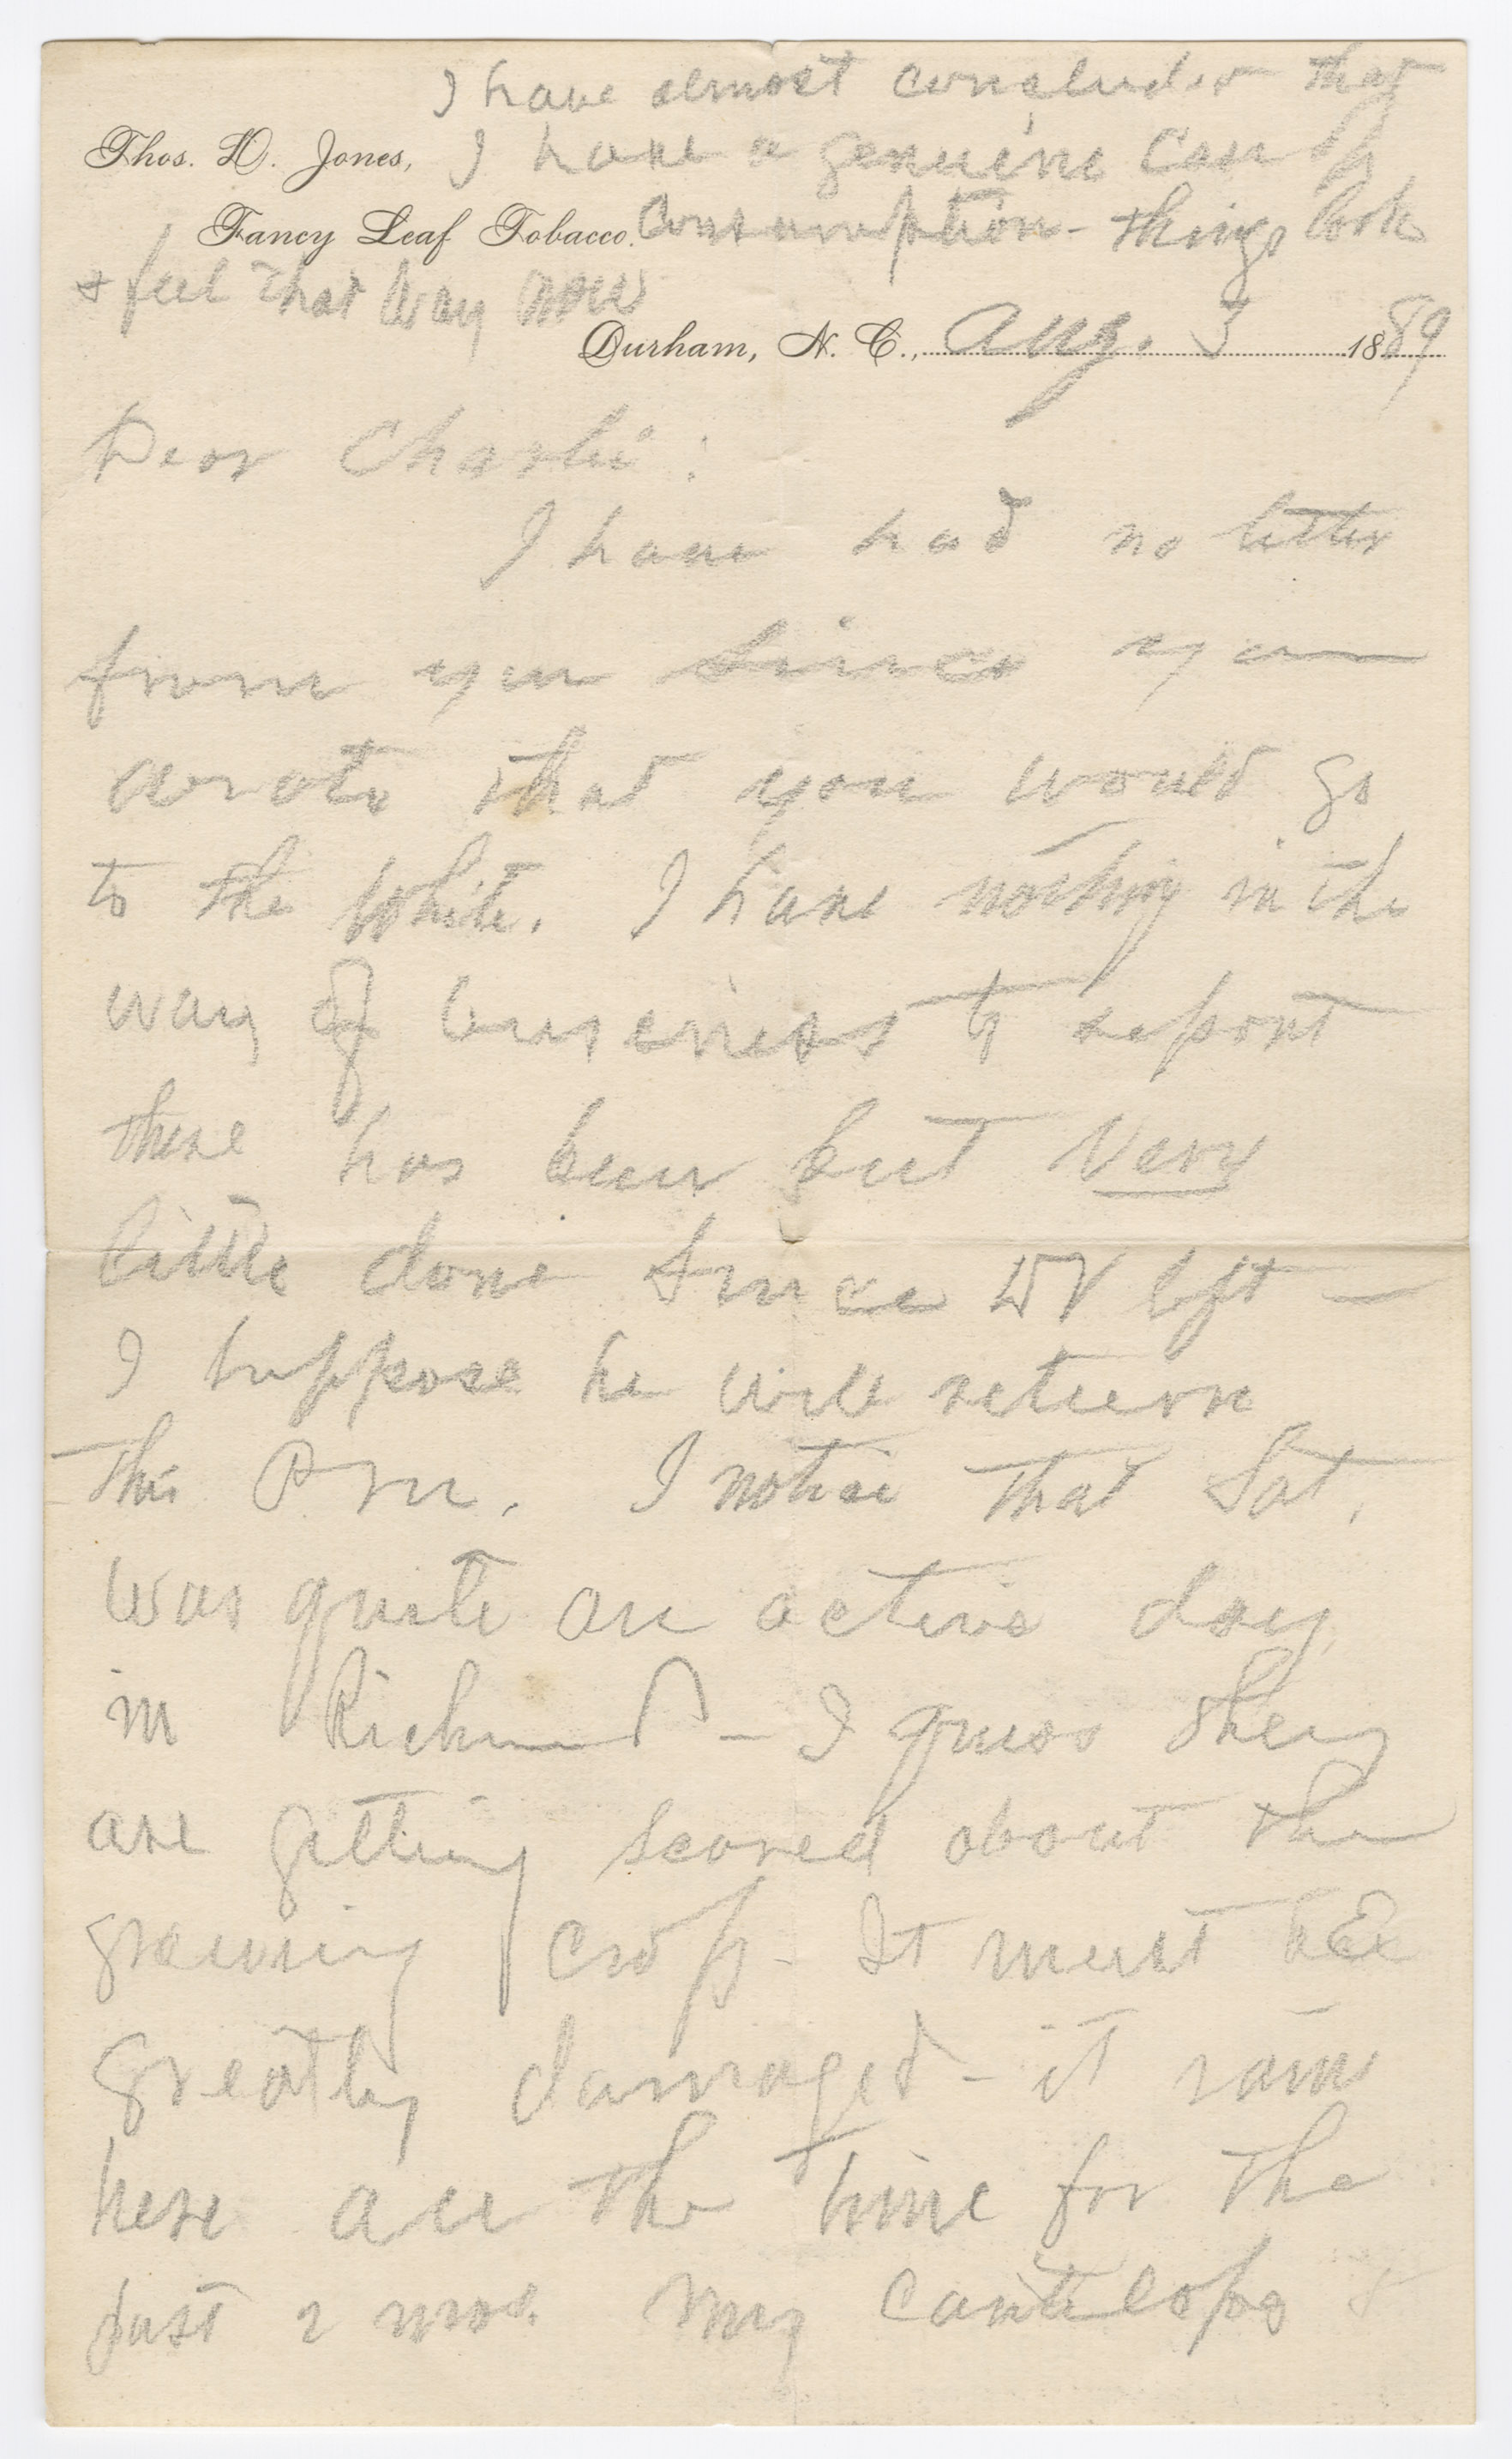 I have almost concluded that
Thos. D. Jones, I have a genuine case of
Fancy Leaf Tobacco. Consumption - things look
& feel that way now
Durham, N. C., Aug. 3 1889
Dear Charlie:
I have had no letter
from you since you
wrote that you would go
to the White. I have nothing in the
way of business to report
there has been but very
little done since WV left -
I suppose he will return
this P.M. I notice that Sat.
was quite an active day
in Richmond - I guess they
are getting scared about the
growing crop - It must be
greatly damaged - it rains
here all the time for the
past 2 mos. My cantelopes &